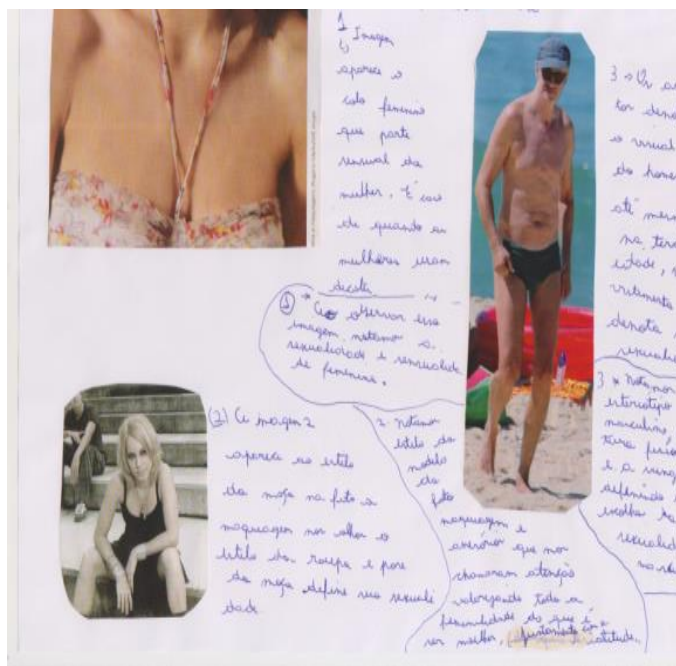 1 Imagem
aparece o
colo feminino
que parte
sensual da
mulher. E
de quando as
mulheres usam
decolte
(1) → observar essa
imagem, notamos a
sexualidade e sensualida
de feminina.
(2) imagem 2
aparece ao estilo
da moça na foto a
maquiagem nos olhos o
estilo da roupa e pose
da moça define sua sexuali
dade
2. Notamos
estilo da
modelo
da
foto
maquiagem e
que nos
chamaram atenção
valorizando toda a
feminilidade do que é
ser mulher, juntamente com a
atitude.
3 → Os
tor deno
o visual
do home
até mesm
na terc
idade, 
denota
sexuali
3 → Notamos
masculino,
e a sung
definindo
escolha
sexualid